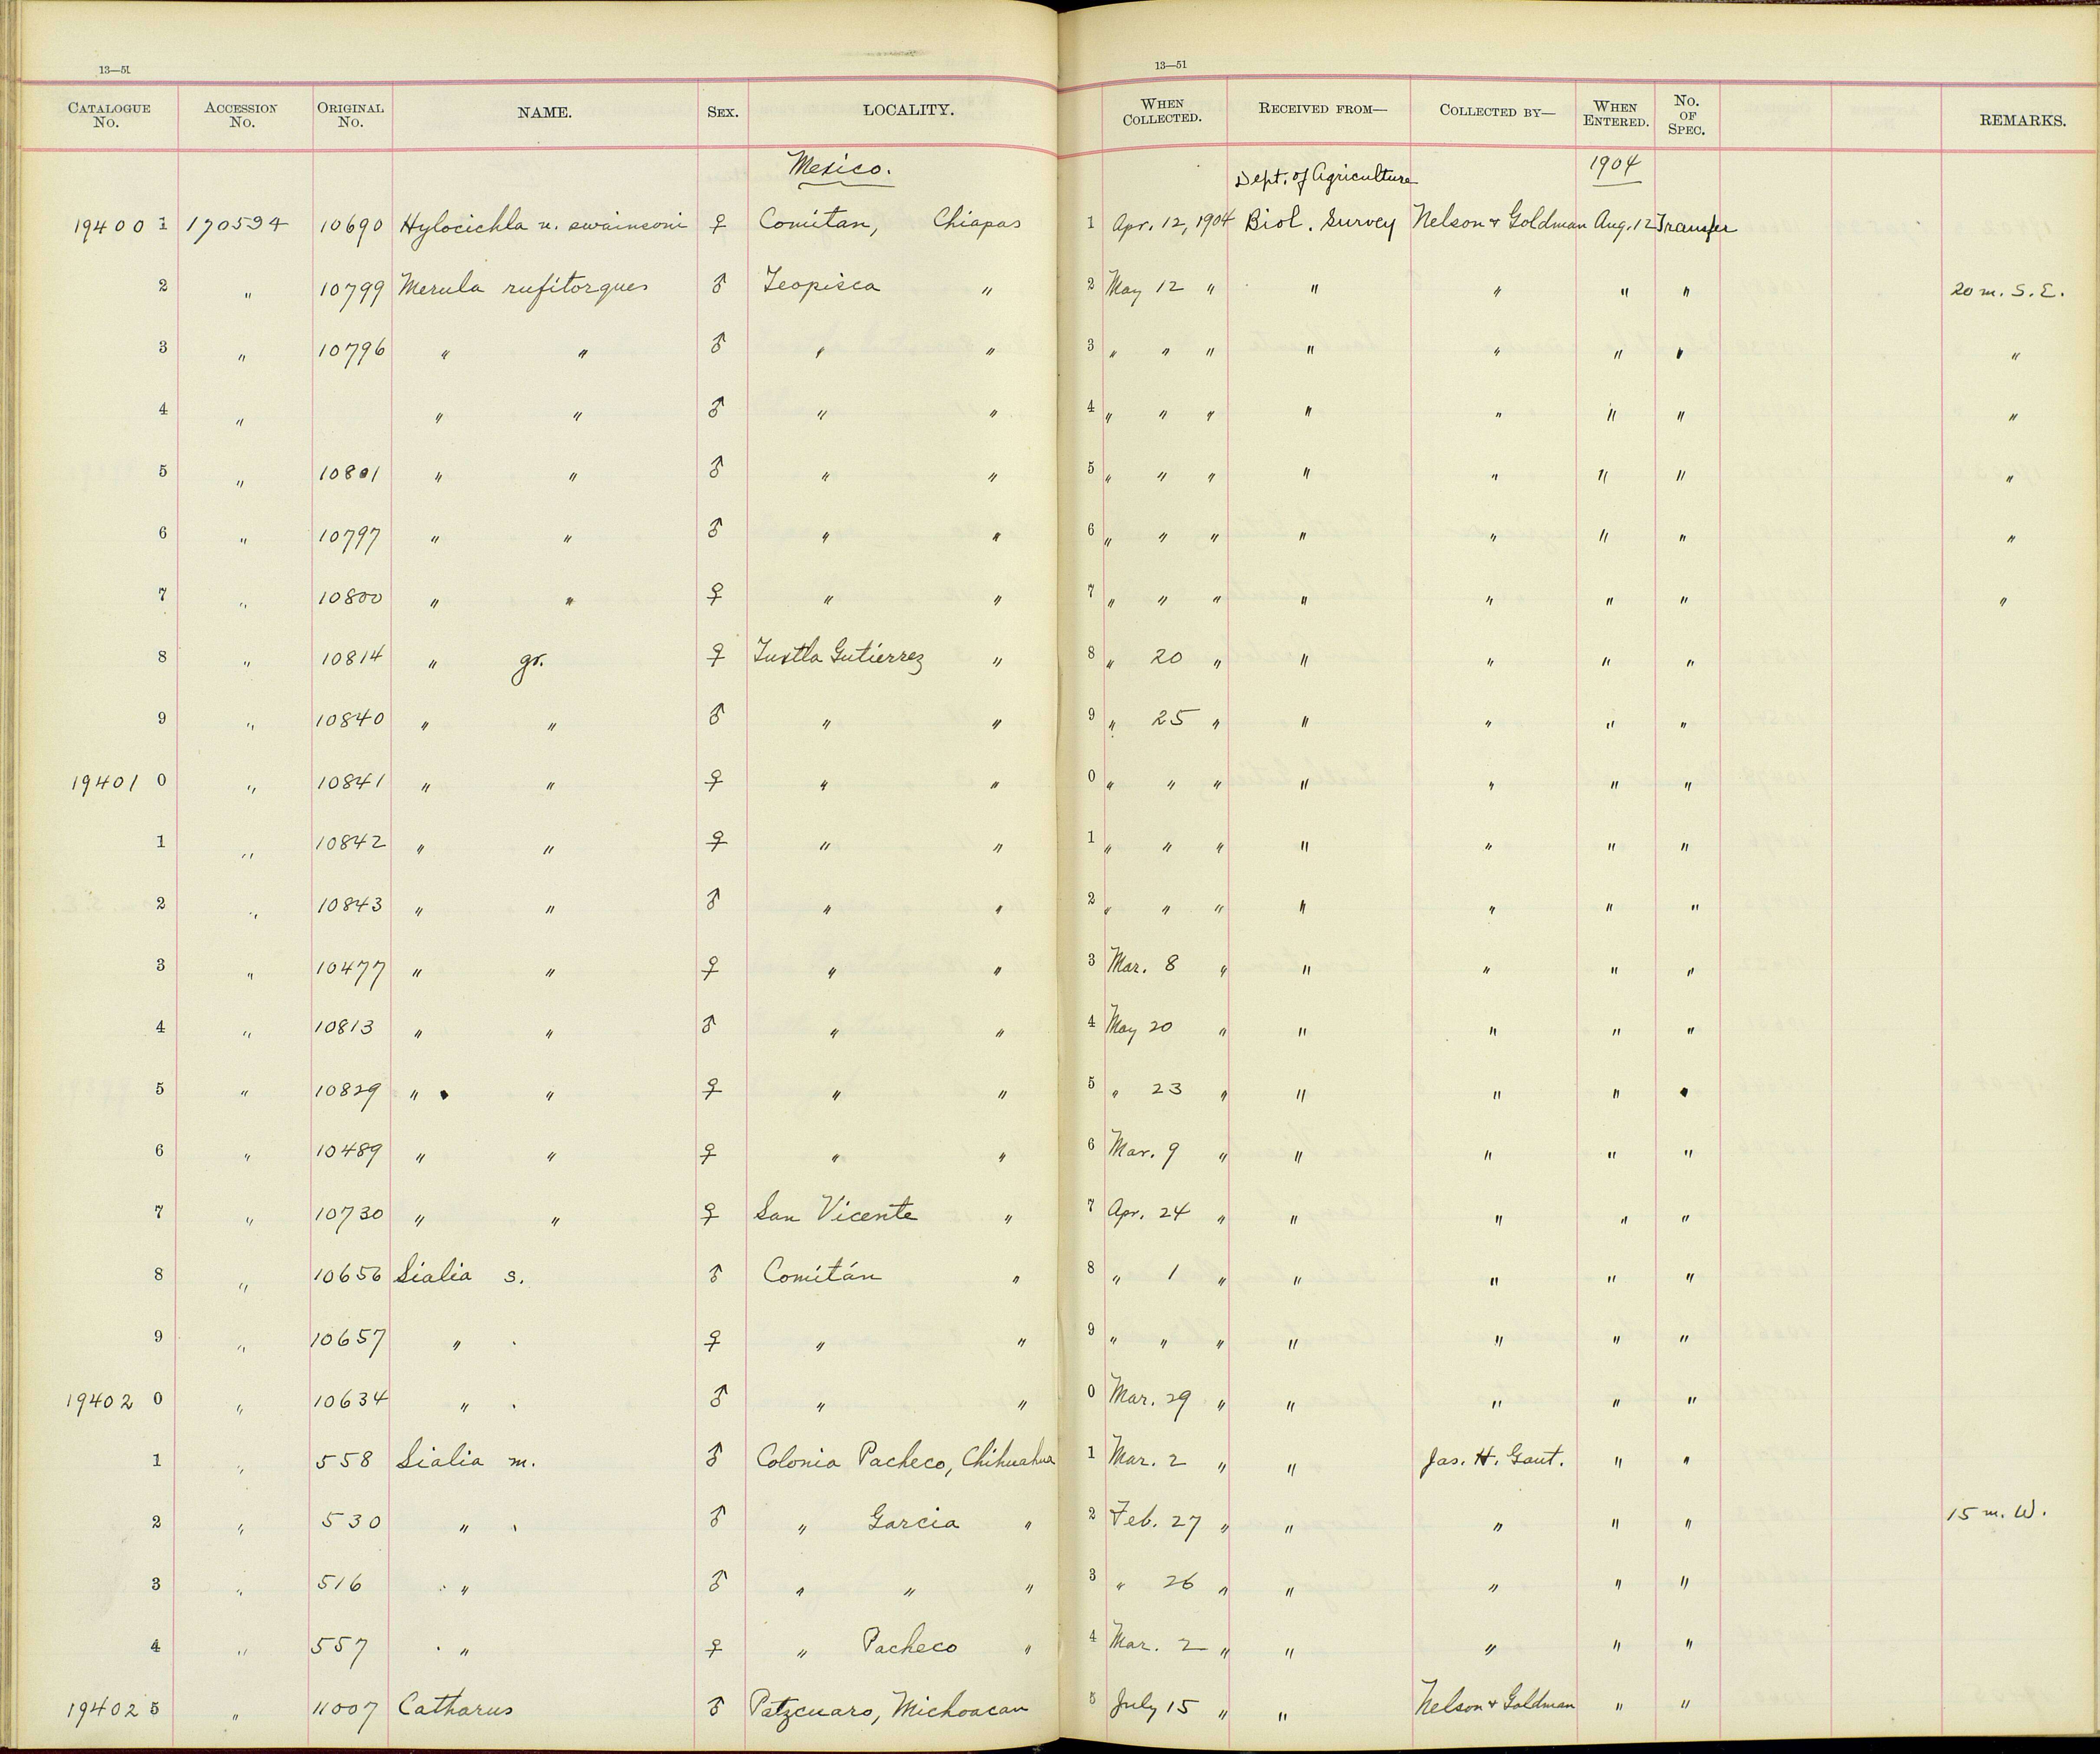 13—51 13—51
CATALOGUE No. ACCESSION No. ORIGINAL No. NAME. SEX. LOCALITY. WHEN COLLECTED. RECEIVED FROM— COLLECTED BY— WHEN ENTERED. No. OF SPEC. REMARKS.
Mexico. Dept. of Agriculture 1904
19400 1 170594 10690 Hylocichla u. swainsoni ♀ Comitan, Chiapas 1 Apr. 12, 1904 Biol. Survey Nelson & Goldman Aug. 12 Transfer
2 " 10799 Merula rufitorques ♂ Teopisca " 2 May 12 " " " " " 20 m. S. E.
3 " 10796 " " ♂ " " 3 " " " " " " " "
4 " " " ♂ " " 4 " " " " " " " "
5 " 10801 " " ♂ " " 5 " " " " " " " "
6 " 10797 " " ♂ " " 6 " " " " " " " "
7 " 10800 " " ♀ " " 7 " " " " " " " "
8 " 10814 " gr. ♀ Tuxtla Gutierrez " 8 " 20 " " " " "
9 " 10840 " " ♂ " " 9 " 25 " " " " "
19401 0 " 10841 " " ♀ " " 0 " " " " " " "
1 " 10842 " " ♀ " " 1 " " " " " " "
2 " 10843 " " ♂ " " 2 " " " " " " "
3 " 10477 " " ♀ " " 3 Mar. 8 " " " " "
4 " 10813 " " ♂ " " 4 May 20 " " " " "
5 " 10829 " " ♀ " " 5 " 23 " " " " "
6 " 10489 " " ♀ " " 6 Mar. 9 " " " " "
7 " 10730 " " ♀ San Vicente " 7 Apr. 24 " " " " "
8 " 10656 Sialia s. ♂ Comitán " 8 " 1 " " " " "
9 " 10657 " ♀ " " 9 " " " " " " "
19402 0 " 10634 " ♂ " " 0 Mar. 29 " " " " "
1 " 558 Sialia m. ♂ Colonia Pacheco, Chihuahua 1 Mar. 2 " " Jas. H. Gaut. " "
2 " 530 " ♂ " Garcia " 2 Feb. 27 " " " " " 15 m. W.
3 " 516 " ♂ " " " 3 " 26 " " " " "
4 " 557 " ♀ " Pacheco " 4 Mar. 2 " " " " "
19402 5 " 11007 Catharus ♂ Patzcuaro, Michoacan 5 July 15 " " Nelson & Goldman " "